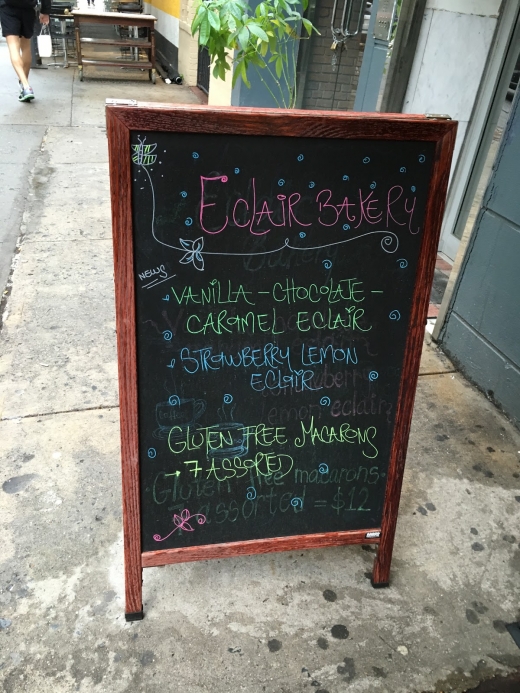 ECLAIR BAKERY
NEWS
VANILLA - CHOCOLATE -
CARAMEL ECLAIR
STRAWBERRY LEMON
ECLAIR
GLUTEN FREE MACARONS
. 7 ASSORED
Gluten free macarons
assorted = $12